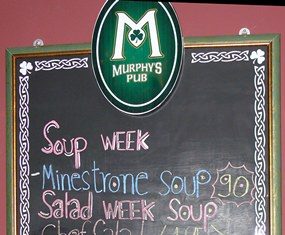 M
MURPHY'S
PUB
Soup WEEK
Minestrone Soup 90
Salad WEEK Soup
Chef Salad